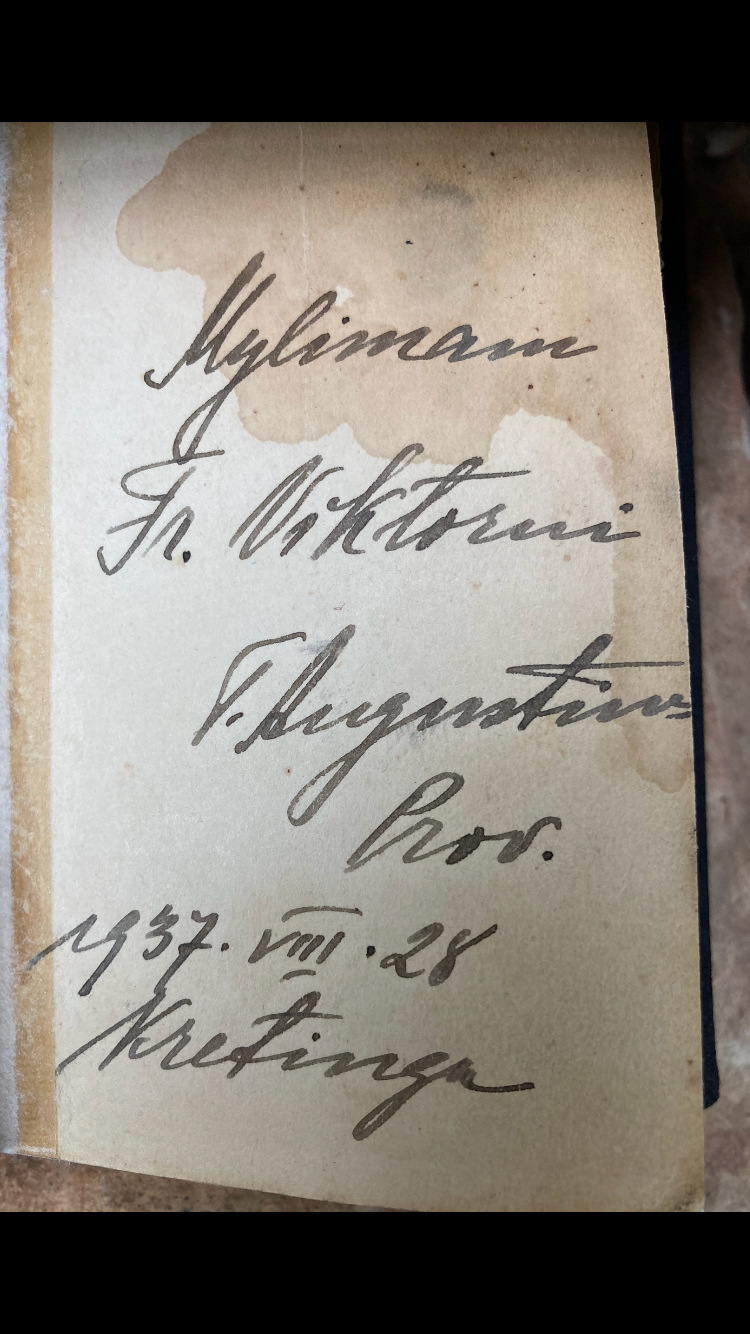 Mylimam
Fr. Viktorui
T. Augustinas
Prov.
1937. VIII. 28
Kretinga